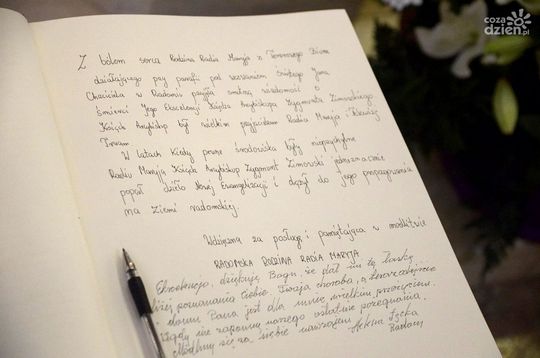 coza
dzien.pl
Z bólem serca Rodzina Radia Maryja z Terenowego Biura
działającego przy parafii pod wezwaniem Świętego Jana
Chrzciciela w Radomiu przyjęła smutną wiadomość o
śmierci Jego Ekscelencji Księdza Arcybiskupa Zygmunta Zimowskiego
Ksiądz Arcybiskup był wielkim przyjacielem Radia Maryja i Telewizji
Trwam.
W latach kiedy pewne środowiska były nieprzychylne
Radiu Maryja Ksiądz Arcybiskup Zygmunt Zimowski jednoznacznie
poparł dzieło Nowej Ewangelizacji i dążył do jego propagowania
na Ziemi radomskiej.
Wdzięczna za posługę i pamiętająca w modlitwie
RADOMSKA RODZINA RADIA MARYJA
Ekscelencjo, dziękuję Bogu, że dał mi tę łaskę
poznawania Ciebie Twoja choroba, a teraz odejście
domu Pana jest dla mnie wielkim przeżyciem.
Nigdy nie zapomnę naszego ostatnie pożegnania.
Módlmy się za siebie nawzajem Helena
Radom